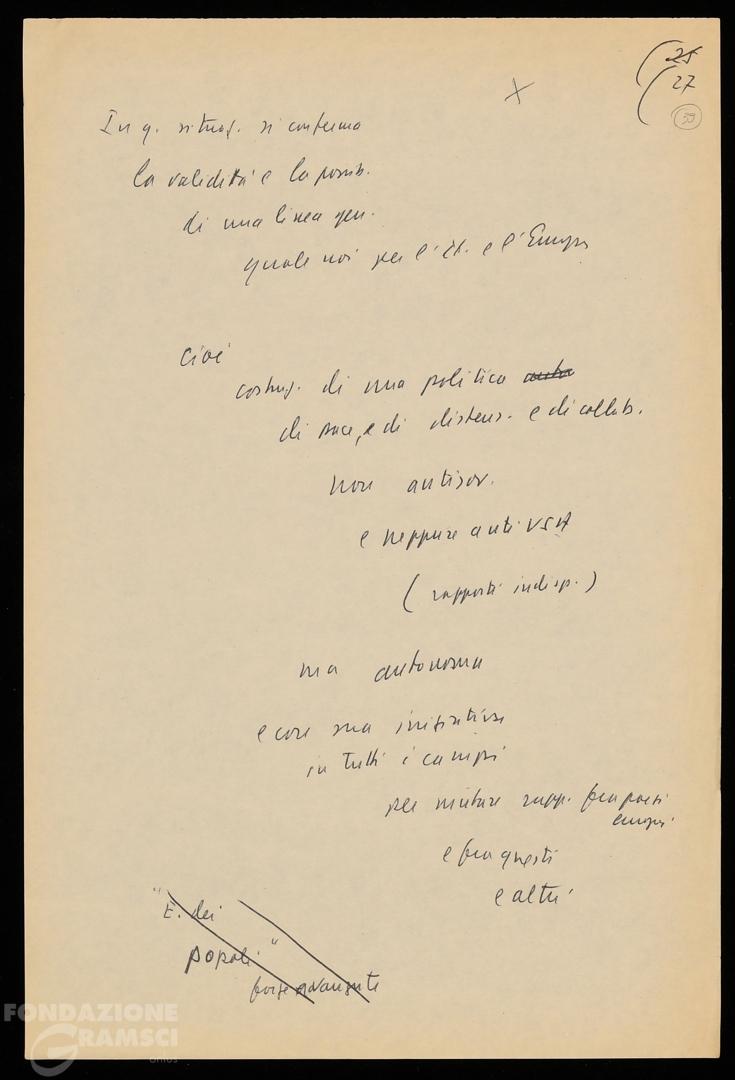 25
27
39
X
In q. situaz. si conferma
la validità e la possib.
di una linea gen.
quale noi per l'It. e l'Europa
Cioè
costruz. di una politica
di pace, e di distens. e di collab.
non antisov.
e neppure anti USA
(rapporti indisp.)
ma autonoma
e con sua iniziativa
in tutti i campi
per mutare rapp. fra paesi
europei
e fra questi
e altri
"E. dei
popoli"
forze avanzate
FONDAZIONE
GRAMSCI
onlus